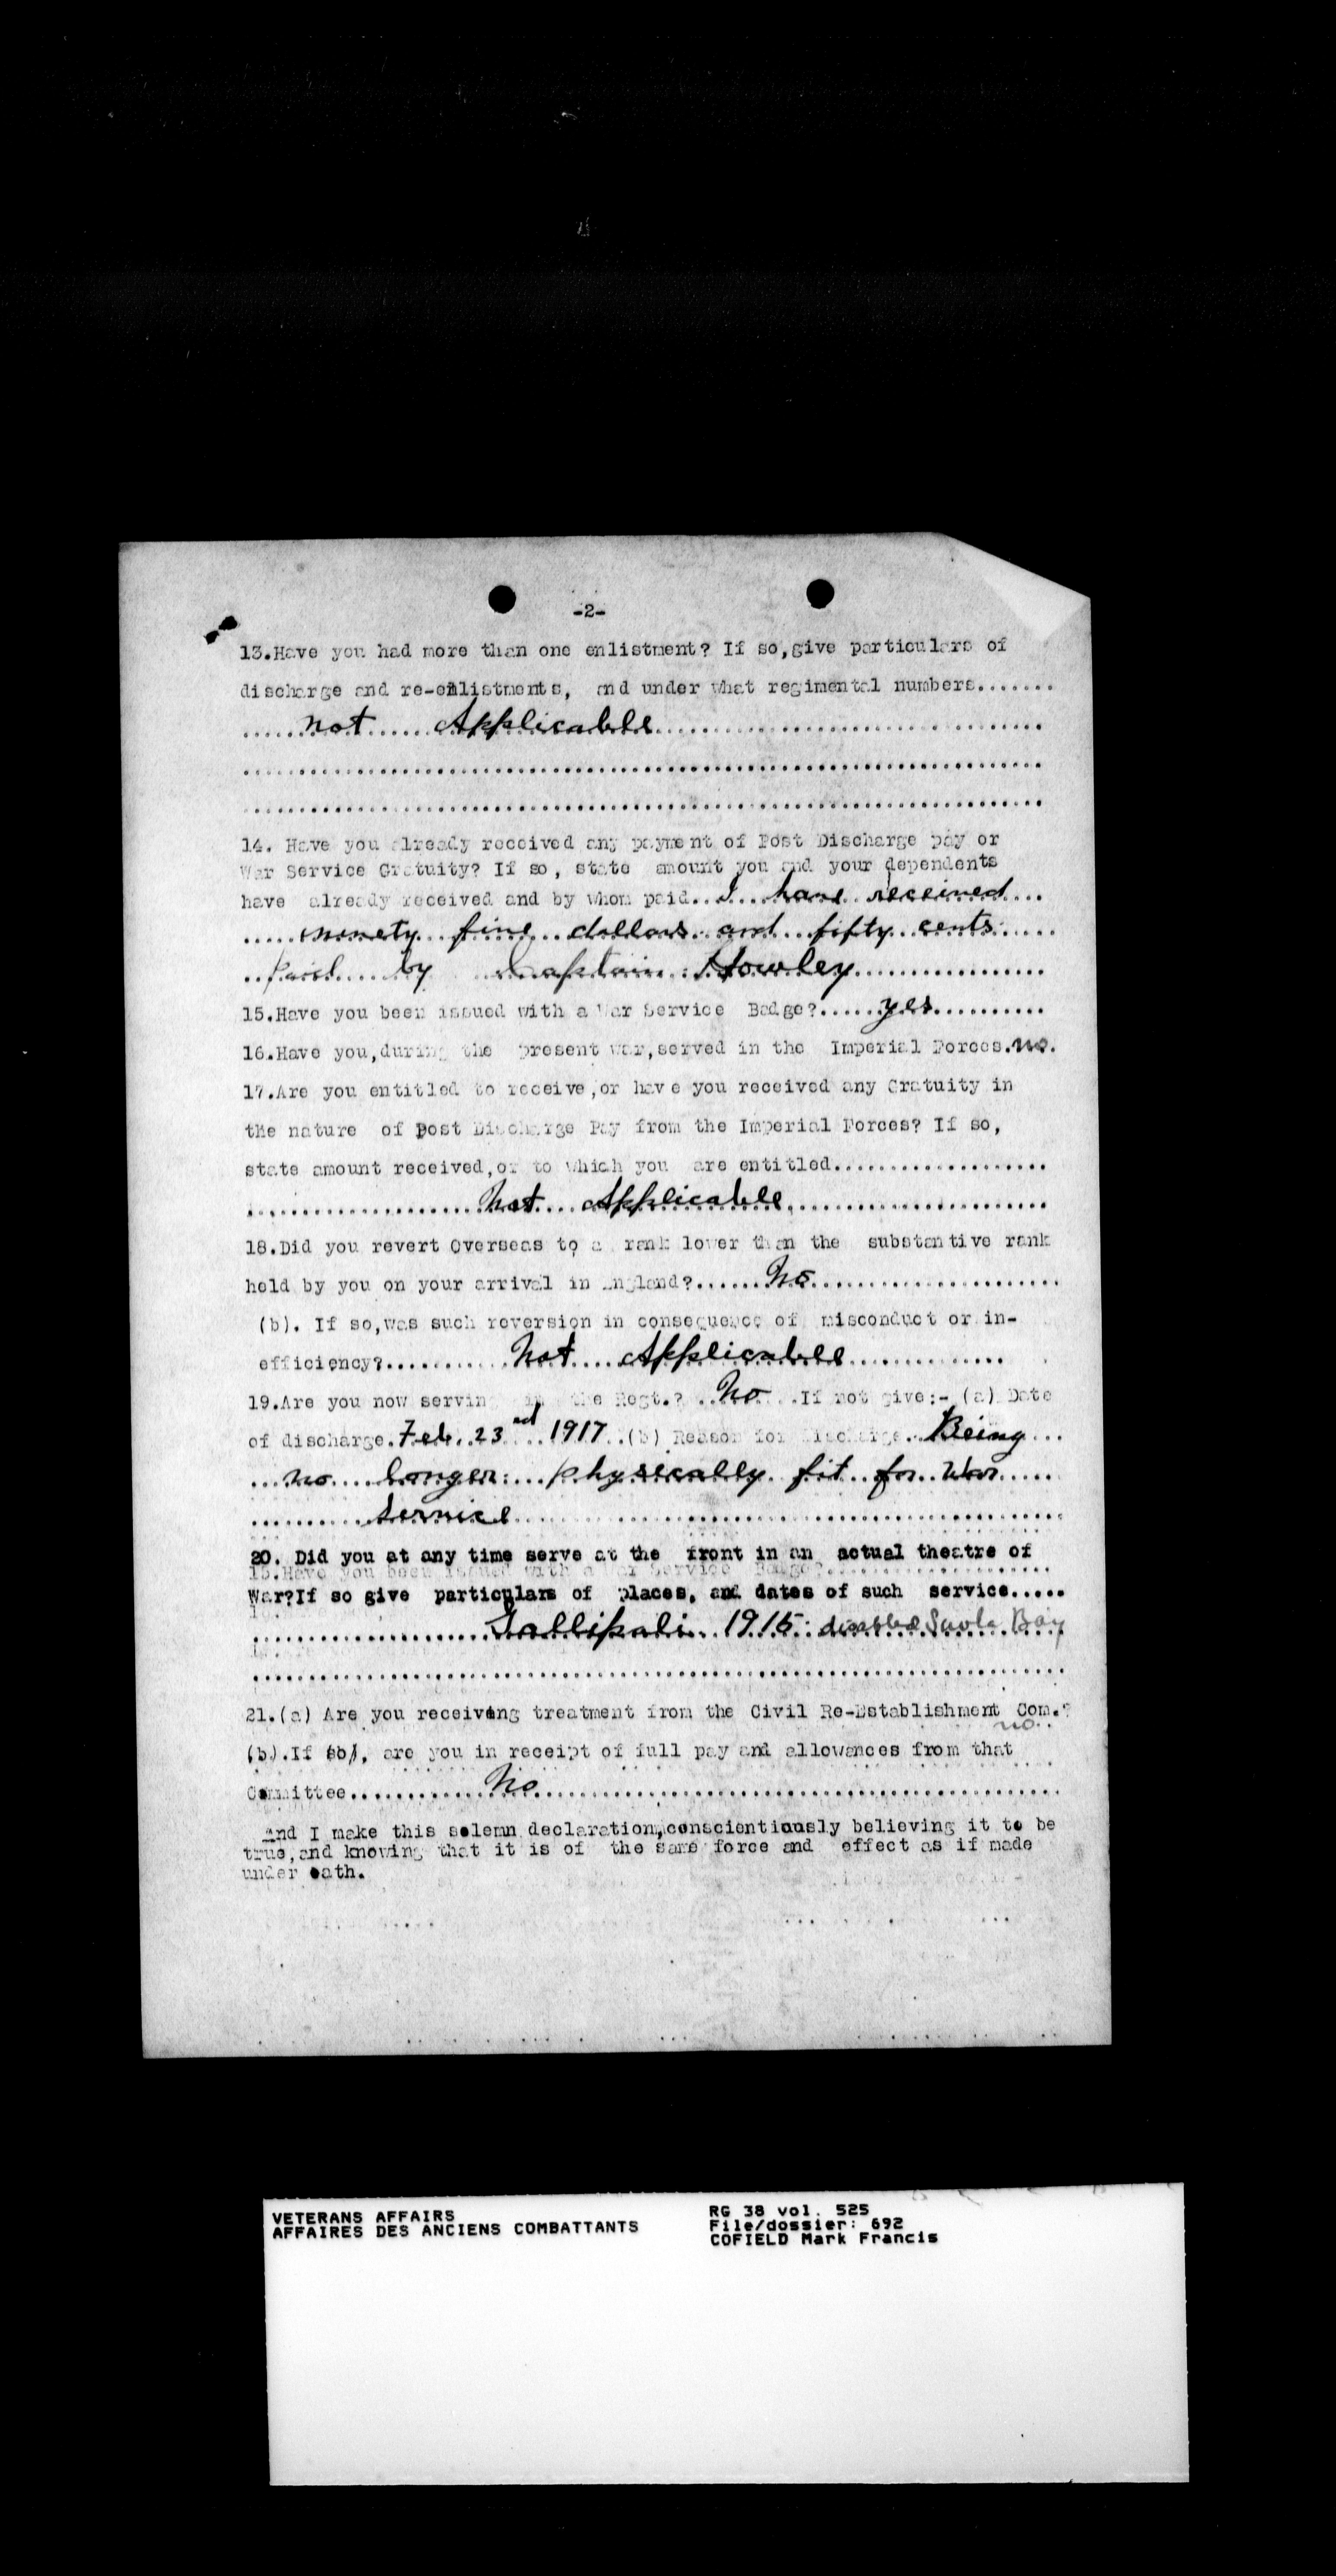 -2-
13.Have you had more than one enlistment? If so,give particulars of
discharge and re-enlistments, and under what regimental numbers.......
not Applicable
14. Have you already received any payment of Post Discharge pay or
War Service Gratuity? If so, state amount you and your dependents
have already received and by whom paid.. I have received
ninety five dollars and fifty cents
Paid by Captain Howley
15.Have you been issued with a War Service Badge?......yes..........
16.Have you,during the present war,served in the Imperial Forces.no.
17.Are you entitled to receive,or have you received any Gratuity in
the nature of post Discharge Pay from the Imperial Forces? If so,
state amount received,or to which you are entitled...................
Not Applicable
18.Did you revert Overseas to a rank lower than the substantive rank
held by you on your arrival in England?......No......................
(b). If so,was such reversion in consequence of misconduct or in-
efficiency?...........Not Applicable..............
19.Are you now serving in the Regt.? ..No...If not give:- (a) Date
of discharge.Feb. 23rd 1917..(b) Reason for Discharge..Being...
no longer physically fit for War
Service
20. Did you at any time serve at the front in an actual theatre of
15.Have you been issued with a War Service Badge?
War?If so give particulars of places, and dates of such service.....
Gallipoli 1915 disabled Suvla Bay
21.(a) Are you receiving treatment from the Civil Re-Establishment Com.?
no
(b).If so, are you in receipt of full pay and allowances from that
Committee............No.......................................
And I make this solemn declaration,conscientiously believing it to be
true,and knowing that it is of the same force and effect as if made
under oath.
VETERANS AFFAIRS
AFFAIRES DES ANCIENS COMBATTANTS
RG 38 vol. 525
File/dossier: 692
COFIELD Mark Francis